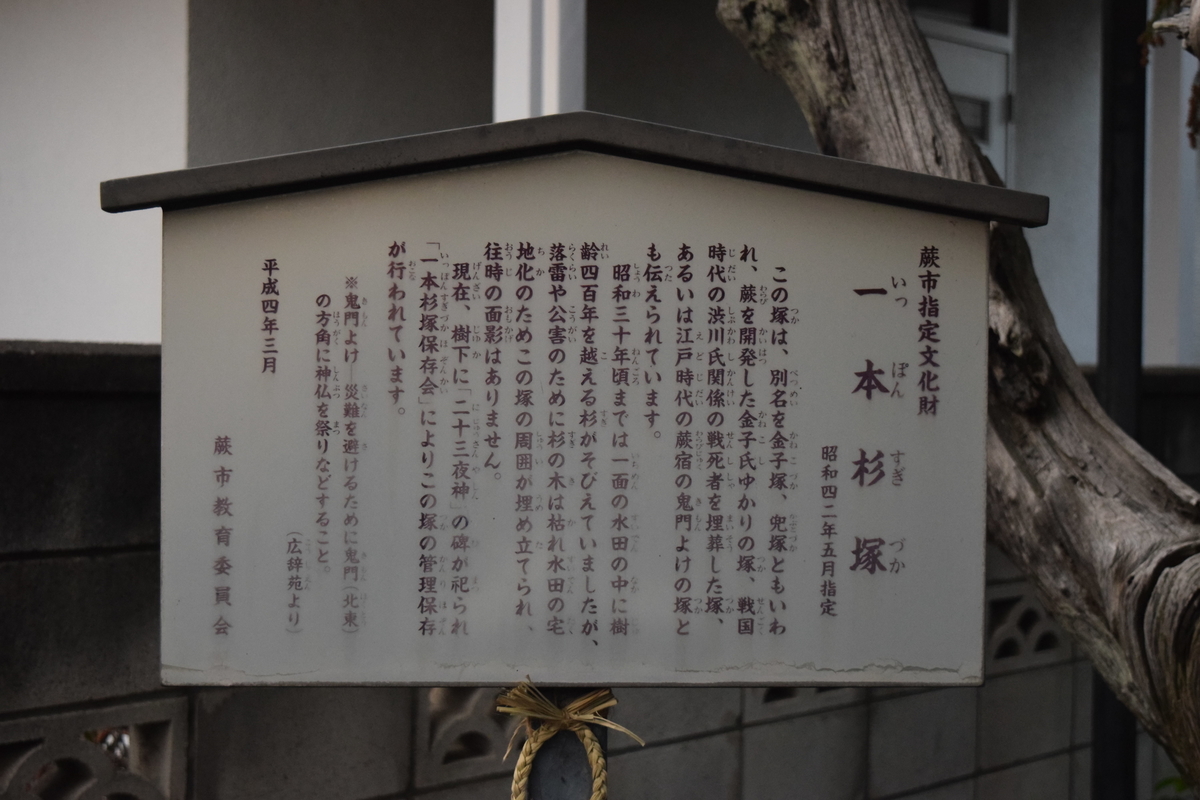 蕨市指定文化財
一本杉塚
昭和四二年五月指定
この塚は、別名を金子塚、兜塚ともいわ
れ、蕨を開発した金子氏ゆかりの塚、戦国
時代の渋川氏関係の戦死者を埋葬した塚、
あるいは江戸時代の蕨宿の鬼門よけの塚と
も伝えられています。
昭和三十年頃までは一面の水田の中に樹
齢四百年を越える杉がそびえていましたが、
落雷や公害のために杉の木は枯れ水田の宅
地化のためこの塚の周囲が埋め立てられ、
往時の面影はありません。
現在、樹下に「二十三夜神」の碑が祀られ
「一本杉塚保存会」によりこの塚の管理保存
が行われています。
※鬼門よけ―災難を避けるために鬼門（北東）
の方角に神仏を祭りなどすること。
（広辞苑より）
平成四年三月
蕨市教育委員会